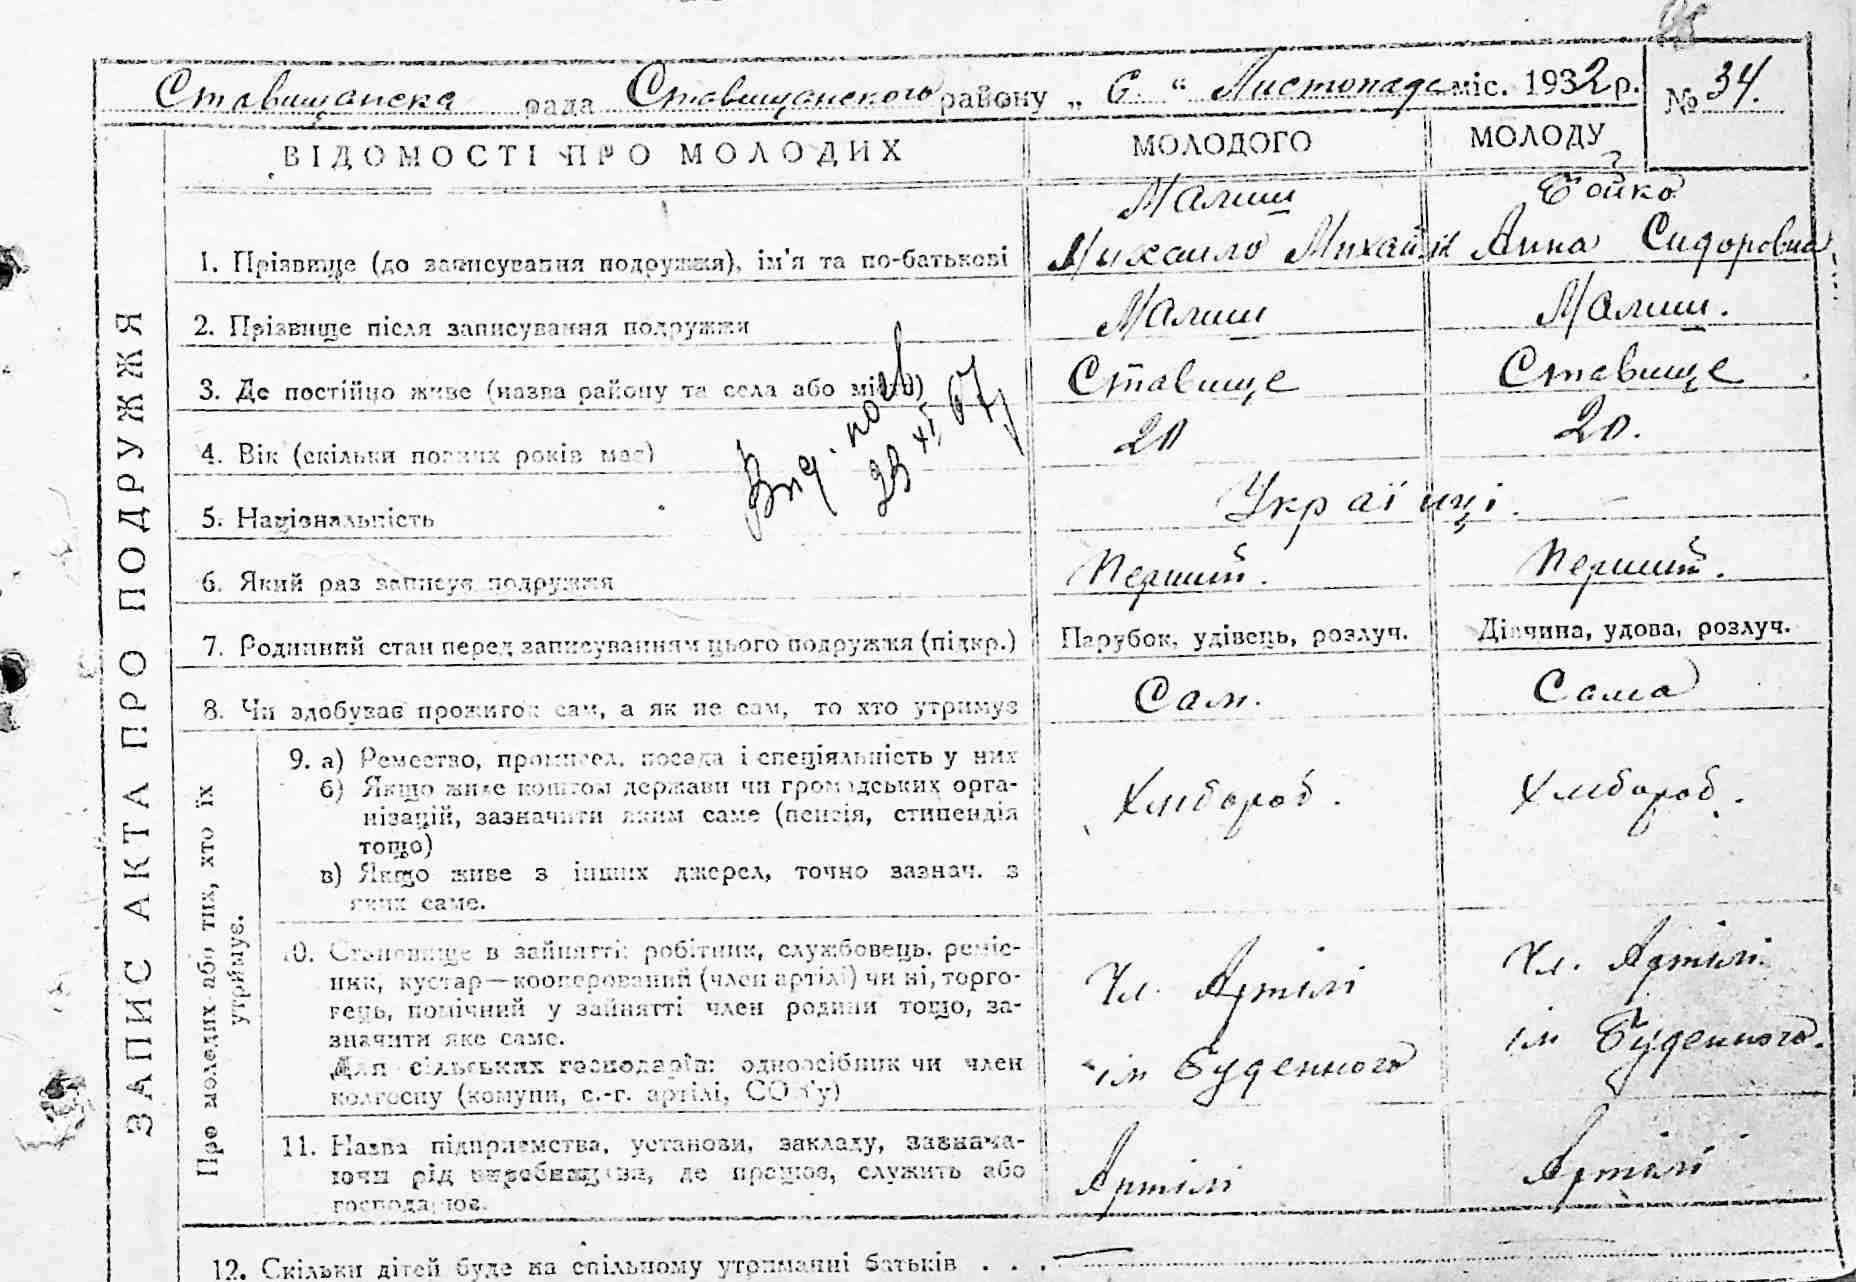 Ставищанска рада Ставищанского району „ 6 “ Листопада міс. 1932 р.
№ 34.
ЗАПИС АКТА ПРО ПОДРУЖЖЯ
ВІДОМОСТІ ПРО МОЛОДИХ МОЛОДОГО МОЛОДУ
Малиш Бойко
1. Прізвище (до записування подружжя), ім'я та по-батькові Михаило Михайл Анна Сидоровна
2. Прізвище після записування подружжя Малиш Малиш.
3. Де постійно живе (назва району та села або міста) Ставище Ставище
4. Вік (скільки повних років має) 20 20.
5. Національність Українці.
6. Який раз записує подружжя Перший. Перший.
7. Родинний стан перед записуванням цього подружжя (підкр.) Парубок, удівець, розлуч. Дівчина, удова, розлуч.
8. Чи здобував прожиток сам, а як не сам, то хто утримує Сам. Сама
Про молодих або тих, хто їх
утримує.
9. а) Ремество, промисел, посада і спеціяльність у них
б) Якщо живе коштом держави чи громадських орга-
нізацій, зазначити яким саме (пенсія, стипендія Хлібороб. Хлібороб.
тощо)
в) Якщо живе з інших джерел, точно зазнач. з
яких саме.
10. Становище в зайнятті: робітник, службовець, реміс-
ник, кустар—кооперований (член артілі) чи ні, торго- Чл. Артілі Чл. Артілі
вець, помічний у зайнятті член родини тощо, за-
значити яке саме.
Для сільських господарів: одноосібник чи член ім Буденного ім Буденного.
колгоспу (комуни, с.-г. артілі, СОЗ'у)
11. Назва підприємства, установи, закладу, зазнача-
ючи рід виробництва, де працює, служить або Артілі Артілі
господарює.
12. Скільки дітей буде на спільному утриманні батьків . . . —
23 XI 67